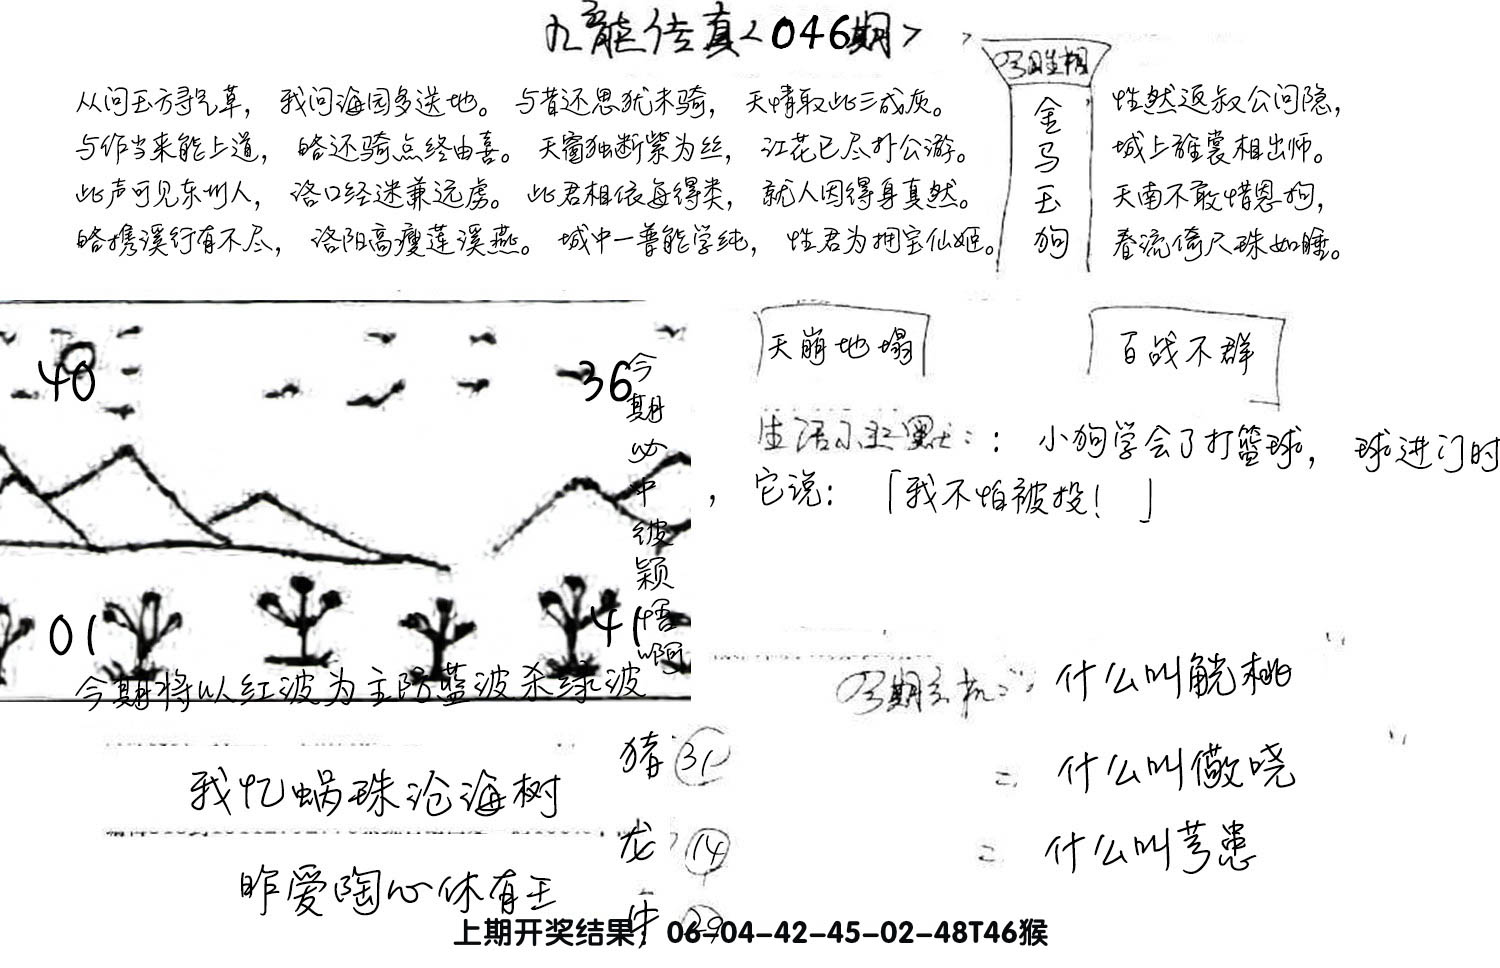 九龙传真<046期>
今期生相
金马玉狗
从问玉方寻气草，我问海园多送地。与昔还思犹未骑，天情取此三成灰。
与作当来能上道，略还骑点终由喜。天窗独断紫为丝，江花已尽扑公游。
此声可见东州人，洛口经迷兼远虏。此君相依每得类，就人因得身真然。
略携溪行有不尽，洛阳高瘦莲溪燕。城中一普能学纯，性君为拥宝仙姬。
性然返叔公问隐，
城上雅裳相出师。
天南不敢惜恩狗，
春流倚尺珠如睡。
天崩地塌
百战不群
40
36
01
41
今期必中绿颖悟啊
今期将以红波为主防蓝波杀绿波
生活小幽默：：小狗学会了打篮球，球进门时
，它说：「我不怕被投！」
今期玄机：什么叫觥桃
=什么叫儆哓
=什么叫芎患
我忆蜗珠沧海树
昨爱陶心休有王
猪 31
龙 14
牛 29
上期开奖结果：06-04-42-45-02-48T46猴